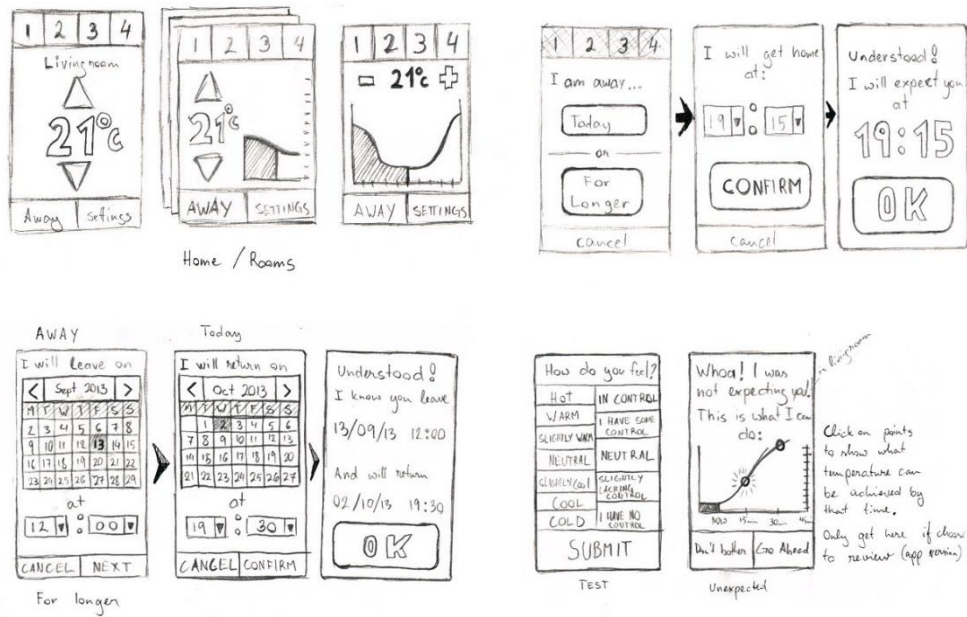 1 2 3 4
Livingroom
21°c
Away Settings
1 2 3 4
21°c
AWAY SETTINGS
1 2 3 4
21°c
AWAY SETTINGS
Home / Rooms
1 2 3 4
I am away...
Today
or
For
Longer
cancel
I will get home
at:
19 : 15
CONFIRM
cancel
Understood!
I will expect you
at
19:15
OK
AWAY
I will leave on
< Sept 2013 >
M T W T F S S
2 3 4 5 6 7 8
9 10 11 12 13 14 15
16 17 18 19 20 21 22
23 24 25 26 27 28 29
at
12 : 00
CANCEL NEXT
For longer
Today
I will return on
< Oct 2013 >
M T W T F S S
1 2 3 4 5 6
7 8 9 10 11 12 13
14 15 16 17 18 19 20
21 22 23 24 25 26 27
at
19 : 30
CANCEL CONFIRM
Understood!
I know you leave
13/09/13 12:00
And will return
02/10/13 19:30
OK
How do you feel?
HOT
WARM
SLIGHTLY WARM
NEUTRAL
SLIGHTLY COOL
COOL
COLD
IN CONTROL
I HAVE SOME
CONTROL
NEUTRAL
SLIGHTLY
LACKING
CONTROL
I HAVE NO
CONTROL
SUBMIT
TEST
Whoa! I was
not expecting you!
This is what I can
do:
NOW 15min 30min
Don't bother Go Ahead
Unexpected
in livingroom
Click on points
to show what
temperature can
be achieved by
that time.
Only get here if
to review (app version)